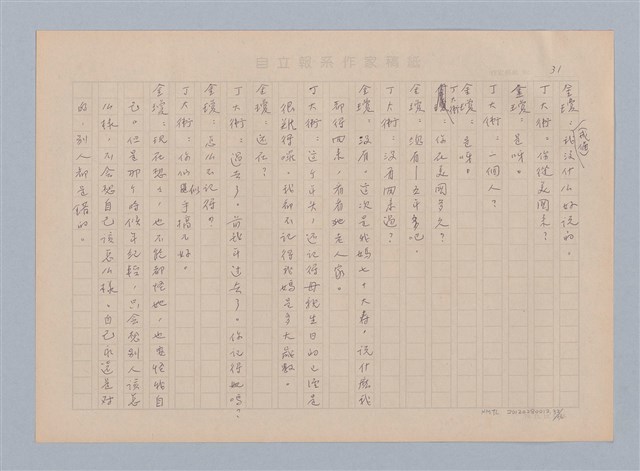 自立報系作家稿紙
31
金瓊：（感慨）我沒什么好說的。
丁大衛：你從美國來？
金瓊：是呀。
丁大衛：一個人？
金瓊：是呀。
丁大衛：你在美國多久？
金瓊：總有十五年多吧。
丁大衛：沒有回來過？
金瓊：沒有。這次是我媽七十大壽，說什麼我
都得回來，看看她老人家。
丁大衛：這个年头，还記得母親生日的已經是
很難得呢。我都不記得我媽是多大歲數。
金瓊：还在？
丁大衛：過去了。前幾年过去了。你記得她嗎？
金瓊：怎么不記得？
丁大衛：你們似乎搞不好。
金瓊：現在想想，也不能都怪她，也要怪我自
己。但是那个時候年紀輕，只會想別人該怎
么樣，不會想自己該怎么樣。自己永遠是对
的，別人都是錯的。